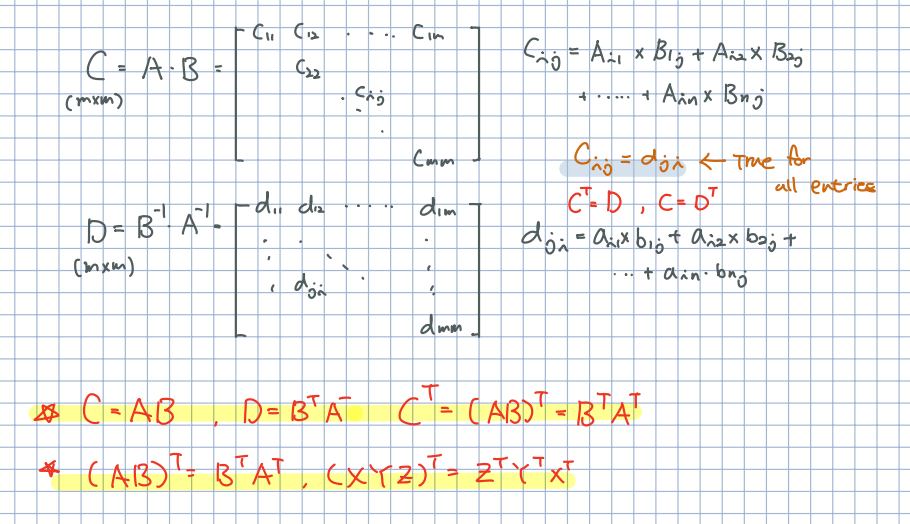 C = A · B = [ C₁₁ C₁₂ ···· C₁m
(m×m) C₂₂
· Cᵢⱼ
·
·
Cmm ]
Cᵢⱼ = Aᵢ₁ × B₁ⱼ + Aᵢ₂ × B₂ⱼ
+ ····· + Aᵢn × Bnⱼ
Cᵢⱼ = dⱼᵢ ← True for
all entries
Cᵀ = D , C = Dᵀ
D = B⁻¹ · A⁻¹ = [ d₁₁ d₁₂ ····· d₁m
(m×m) · · ·
· · · · ·
· dⱼᵢ ·
dmm ]
dⱼᵢ = aᵢ₁ × b₁ⱼ + aᵢ₂ × b₂ⱼ +
··· + aᵢn · bnⱼ
☆ C = AB , D = BᵀA⁻ Cᵀ = (AB)ᵀ = BᵀAᵀ
☆ (AB)ᵀ = BᵀAᵀ , (XYZ)ᵀ = ZᵀYᵀXᵀ